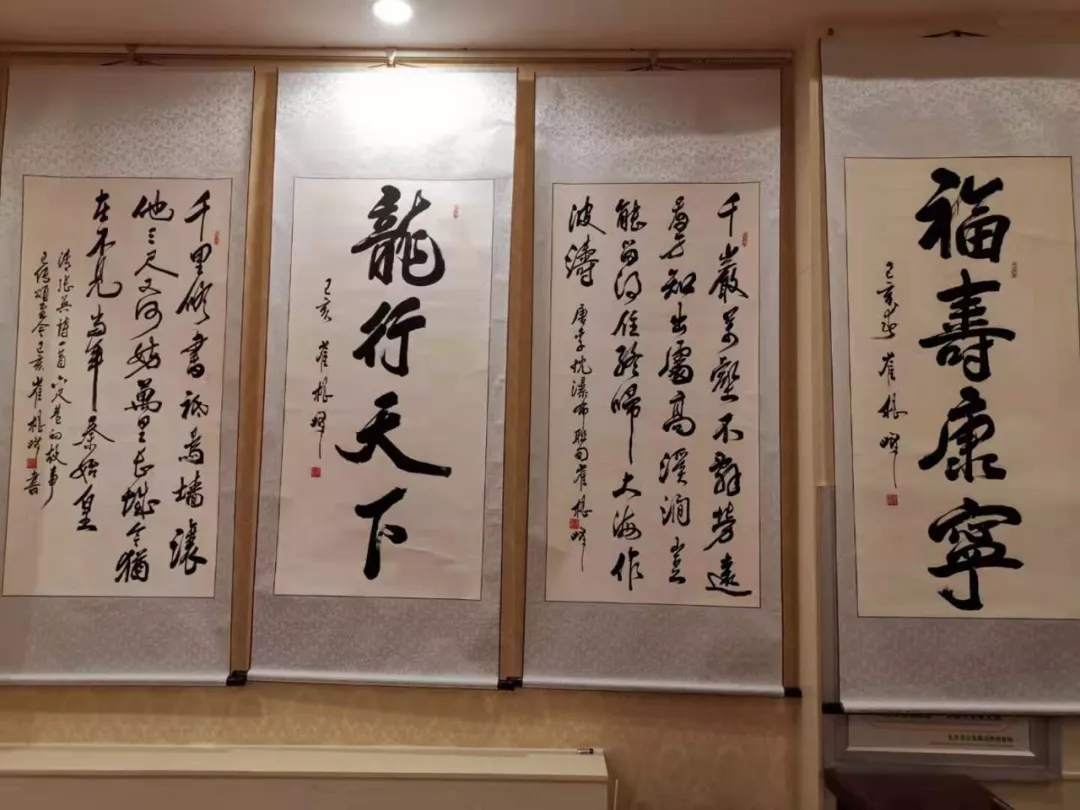 千里修書祗為墙讓
他三尺又何妨萬里長城今猶
在不見當年秦始皇
清張英诗一首六尺巷的故事
已傳頌至今己亥崔根書
龍行天下
己亥 崔根
千巖萬壑不辭勞遠
看方知出處高溪澗豈
能留得住終歸大海作
波濤
唐李忱瀑布联句崔根
福壽康寧
己亥春 崔根